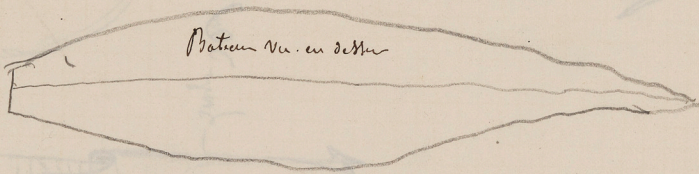 Bateau vu en dessus